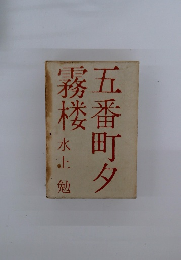 五番町夕
霧楼
水上勉